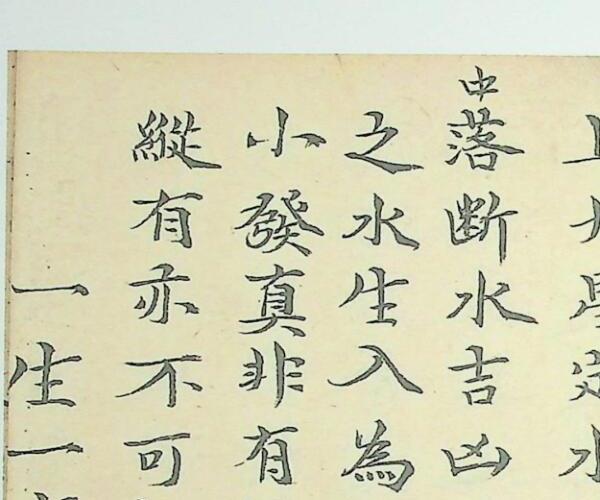 中落断水吉凶
之水生入為
小發真非有
縱有亦不可
一生一